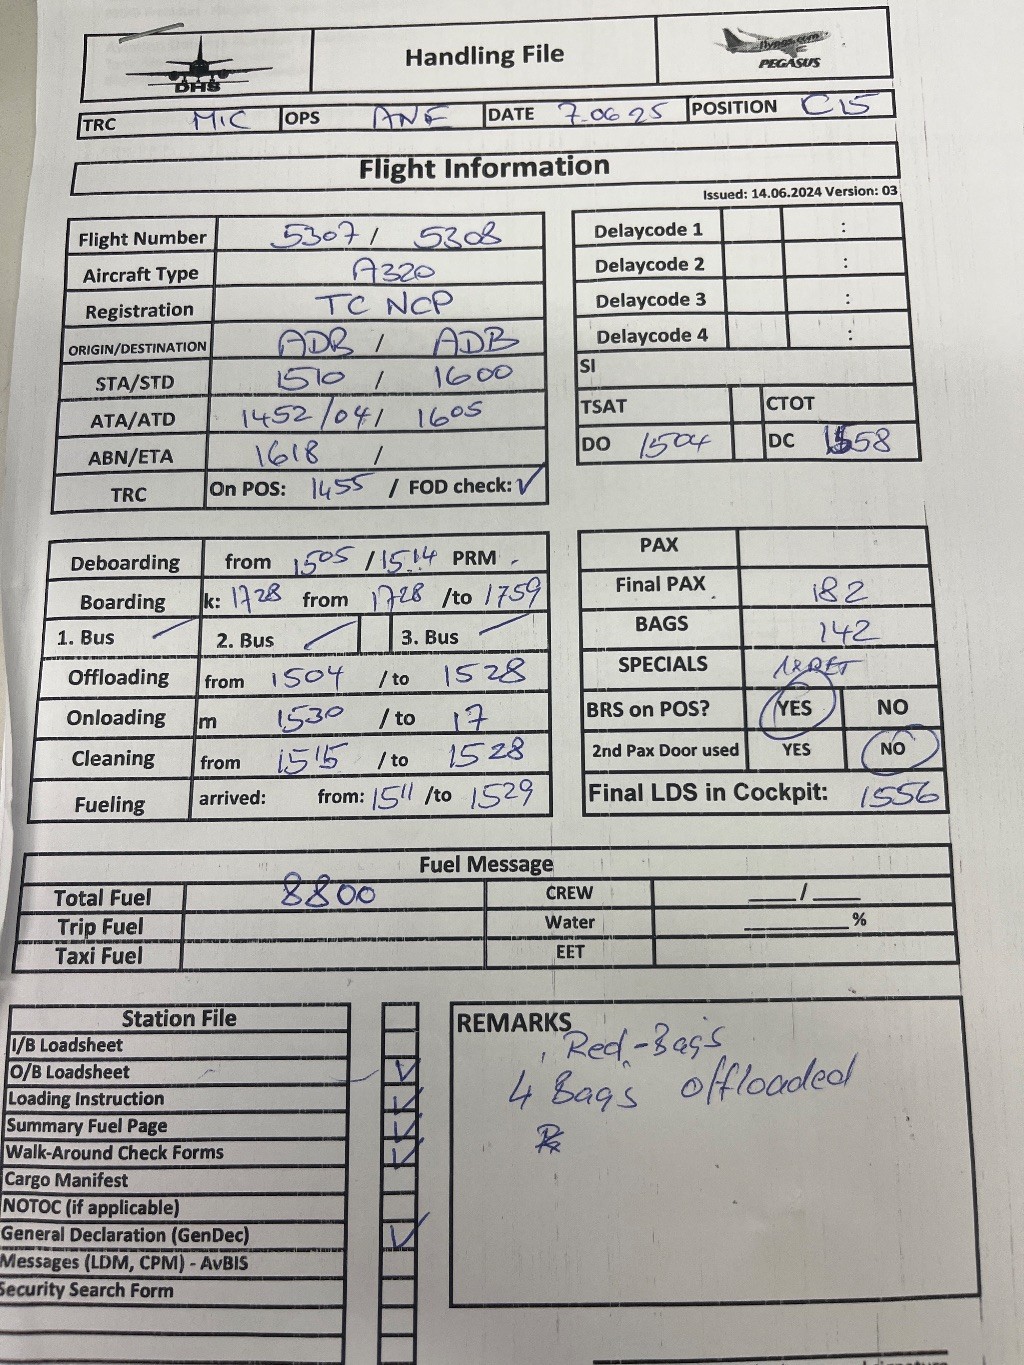 DHS
Handling File
flypgs.com
PEGASUS
TRC MIC OPS ANE DATE 7.06 25 POSITION C15
Flight Information
Issued: 14.06.2024 Version: 03
Flight Number 5307 / 5308
Aircraft Type A320
Registration TC NCP
ORIGIN/DESTINATION ADB / ADB
STA/STD 1510 / 1600
ATA/ATD 1452/04/ 1605
ABN/ETA 1618 /
TRC On POS: 1455 / FOD check: ✓
Delaycode 1 :
Delaycode 2 :
Delaycode 3 :
Delaycode 4 :
SI
TSAT CTOT
DO 1504 DC 1558
Deboarding from 1505 /1514 PRM -
Boarding k: 1728 from 1728 /to 1759
1. Bus 2. Bus 3. Bus
Offloading from 1504 / to 1528
Onloading m 1530 / to 17
Cleaning from 1515 / to 1528
Fueling arrived: from: 1511 /to 1529
PAX
Final PAX 182
BAGS 142
SPECIALS
BRS on POS? YES NO
2nd Pax Door used YES NO
Final LDS in Cockpit: 1556
Fuel Message
Total Fuel 8800 CREW ____/____
Trip Fuel Water ________%
Taxi Fuel EET
Station File
I/B Loadsheet
O/B Loadsheet ✓
Loading Instruction ✓
Summary Fuel Page ✓
Walk-Around Check Forms ✓
Cargo Manifest
NOTOC (if applicable)
General Declaration (GenDec) ✓
Messages (LDM, CPM) - AvBIS
Security Search Form
REMARKS
Red-Bags
4 Bags offloaded